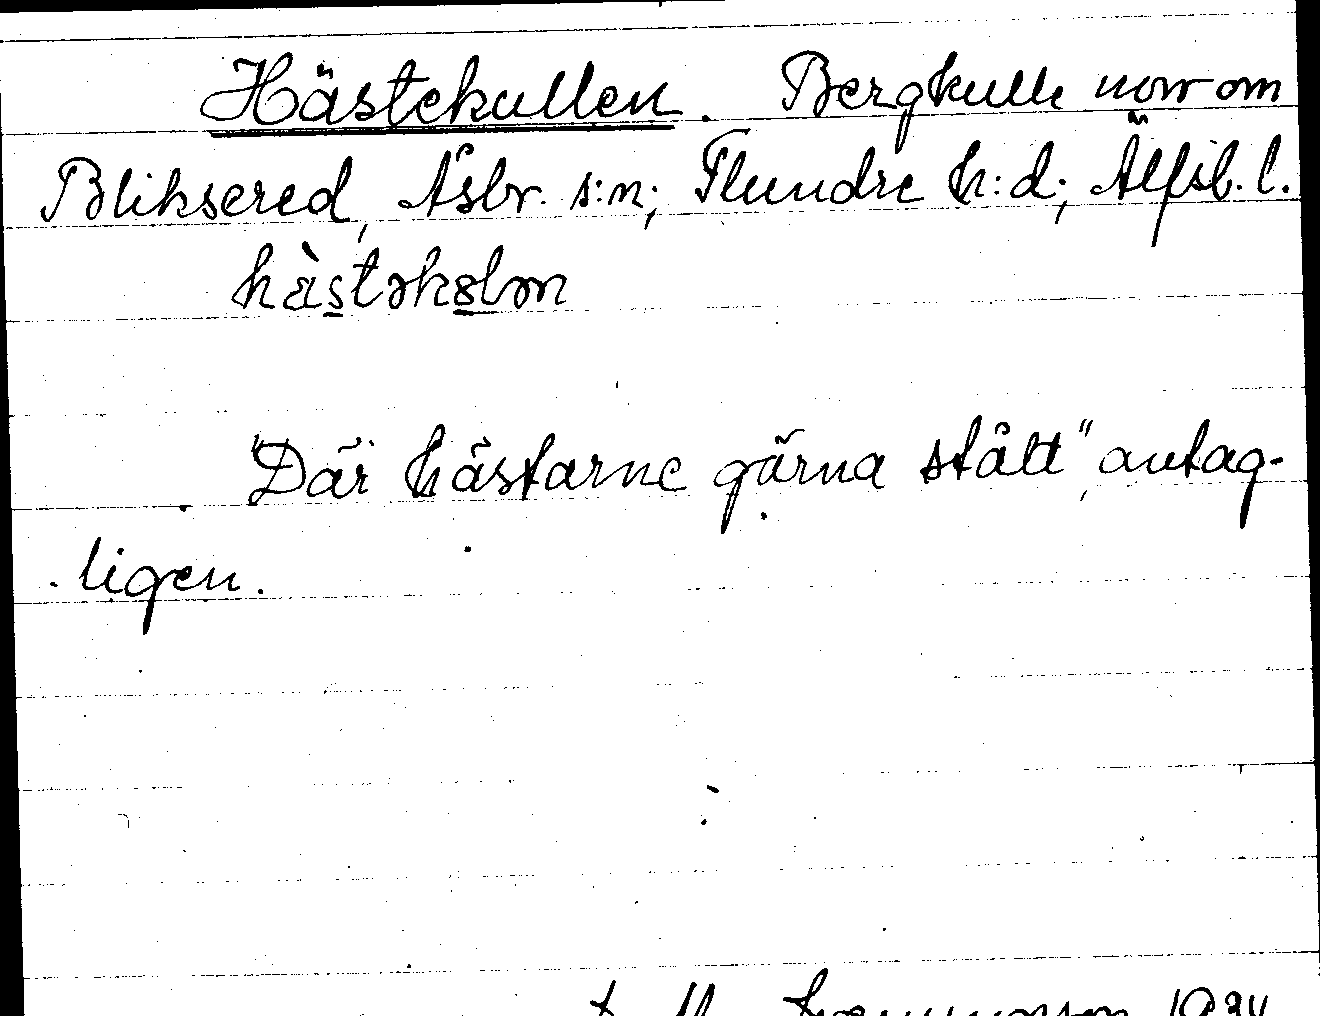 Hästekullen. Bergkulle norr om
Bliksered, Åsbr. s:n; Flundre h:d; Älfsb. l.
hàstəkɵlən
"Där hästarne gärna stått", antag-
ligen.
1934